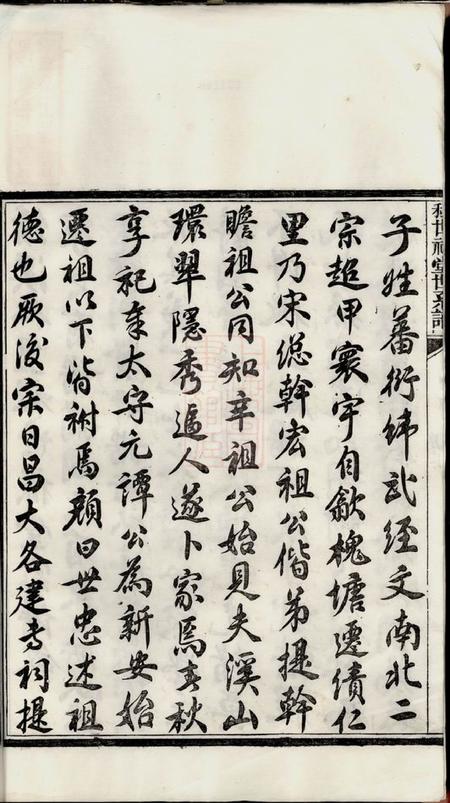 子姓蕃衍緯武經文南北二
宗超甲寰宇自歙槐塘遷績仁
里乃宋總幹宏祖公偕弟提幹
瞻祖公同知辛祖公始見夫溪山
環翠隱秀逼人遂卜家焉春秋
享祀奉太守元譚公為新安始
遷祖以下皆祔焉顏曰世忠述祖
德也厥後宗日昌大各建專祠提
世祠堂世系記